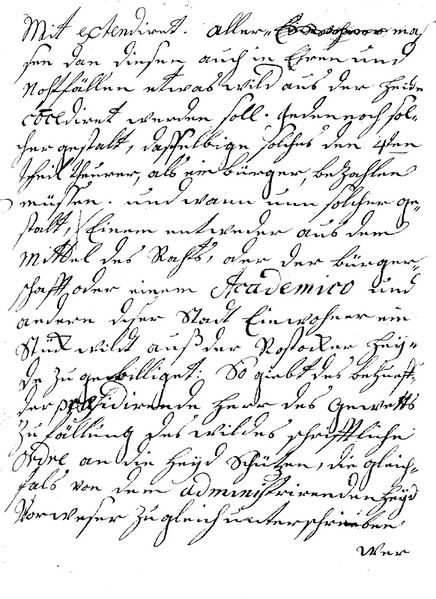 Mit extendiret. aller- Einwohner mas
sen dan diesen auch in Ehren und
Nohtfällen etwas wild aus der Heide
concediret werden soll. Jedennoch sol-
cher gestalt, daß selbige solches den 4ten
theil theurer, als ein bürger, bezahlen
müssen. und wann nun solcher ge-
stalt, Einem entweder aus dem
Mittel des Rahts, oder der bürger-
schafft oder einem Academico und
andern dieser Stadt Einwohner ein
Stück wildt auß der Rostocker Hey-
de zu gebilliget: So giebt des behueff-
der præsidirende Herr des Gewetts
zu fällung des wildes schrifftliche
Zedel an die Heyd Schützen, die gleich-
fals von dem administrirenden Heyd
Vorweser zugleich unterschrieben
wer